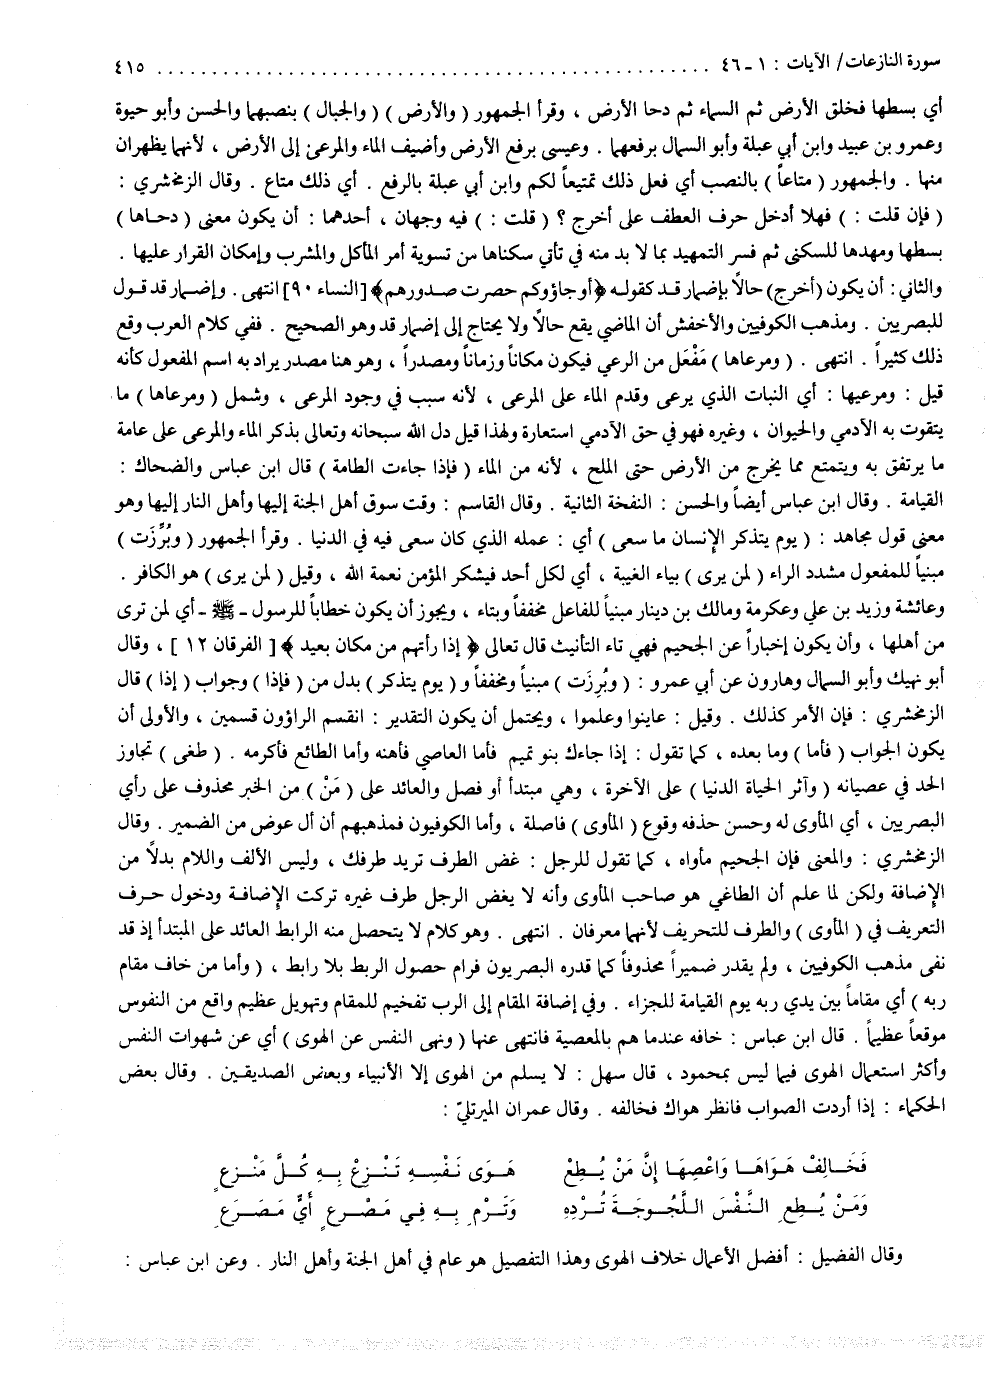 سورة النازعات / الآيات : ١ - ٤٦ ........................................................ ٤١٥
أي بسطها فخلق الأرض ثم السماء ثم دحا الأرض ، وقرأ الجمهور ( والأرض ) ( والجبال ) بنصبهما والحسن وأبو حيوة
وعمرو بن عبيد وابن أبي عبلة وأبو السمال برفعهما . وعيسى برفع الأرض وأضيف الماء والمرعى إلى الأرض ، لأنهما يظهران
منها . والجمهور ( متاعاً ) بالنصب أي فعل ذلك تمتيعاً لكم وابن أبي عبلة بالرفع . أي ذلك متاع . وقال الزمخشري :
( فإن قلت : ) فهلا أدخل حرف العطف على أخرج ؟ ( قلت : ) فيه وجهان ، أحدهما : أن يكون معنى ( دحاها )
بسطها ومهدها للسكنى ثم فسر التمهيد بما لا بد منه في تأتي سكناها من تسوية أمر المأكل والمشرب وإمكان القرار عليها .
والثاني : أن يكون (أخرج) حالاً بإضمار قد كقوله ﴿أو جاؤوكم حصرت صدورهم﴾ [النساء ٩٠] انتهى . وإضمار قد قول
للبصريين . ومذهب الكوفيين والأخفش أن الماضي يقع حالاً ولا يحتاج إلى إضمار قد وهو الصحيح . ففي كلام العرب وقع
ذلك كثيراً . انتهى . ( ومرعاها ) مَفْعَل من الرعي فيكون مكاناً وزماناً ومصدراً ، وهو هنا مصدر يراد به اسم المفعول كأنه
قيل : ومرعيها : أي النبات الذي يرعى وقدم الماء على المرعى ، لأنه سبب في وجود المرعى ، وشمل ( ومرعاها ) ما
يتقوت به الآدمي والحيوان ، وغيره فهو في حق الآدمي استعارة ولهذا قيل دل الله سبحانه وتعالى بذكر الماء والمرعى على عامة
ما يرتفق به ويتمتع مما يخرج من الأرض حتى الملح ، لأنه من الماء ( فإذا جاءت الطامة ) قال ابن عباس والضحاك :
القيامة . وقال ابن عباس أيضاً والحسن : النفخة الثانية . وقال القاسم : وقت سوق أهل الجنة إليها وأهل النار إليها وهو
معنى قول مجاهد : ( يوم يتذكر الإنسان ما سعى ) أي : عمله الذي كان سعى فيه في الدنيا . وقرأ الجمهور ( وبُرِّزَت )
مبنياً للمفعول مشدد الراء ( لمن يرى ) بياء الغيبة ، أي لكل أحد فيشكر المؤمن نعمة الله ، وقيل ( لمن يرى ) هو الكافر .
وعائشة وزيد بن علي وعكرمة ومالك بن دينار مبنياً للفاعل مخففاً وبتاء ، ويجوز أن يكون خطاباً للرسول ـ ﷺ ـ أي لمن ترى
من أهلها ، وأن يكون إخباراً عن الجحيم فهي تاء التأنيث قال تعالى ﴿ إذا رأتهم من مكان بعيد ﴾ [ الفرقان ١٢ ] ، وقال
أبو نهيك وأبو السمال وهارون عن أبي عمرو : ( وبُرِزَت ) مبنياً ومخففاً و ( يوم يتذكر ) بدل من ( فإذا ) وجواب ( إذا ) قال
الزمخشري : فإن الأمر كذلك . وقيل : عاينوا وعلموا ، ويحتمل أن يكون التقدير : انقسم الراؤون قسمين ، والأولى أن
يكون الجواب ( فأما ) وما بعده ، كما تقول : إذا جاءك بنو تميم فأما العاصي فأهنه وأما الطائع فأكرمه . ( طغى ) تجاوز
الحد في عصيانه ( وآثر الحياة الدنيا ) على الآخرة ، وهي مبتدأ أو فصل والعائد على ( مَنْ ) من الخبر محذوف على رأي
البصريين ، أي المأوى له وحسن حذفه وقوع ( المأوى ) فاصلة ، وأما الكوفيون فمذهبهم أن أل عوض من الضمير . وقال
الزمخشري : والمعنى فإن الجحيم مأواه ، كما تقول للرجل : غض الطرف تريد طرفك ، وليس الألف واللام بدلاً من
الإضافة ولكن لما علم أن الطاغي هو صاحب المأوى وأنه لا يغض الرجل طرف غيره تركت الإضافة ودخول حرف
التعريف في ( المأوى ) والطرف للتحريف لأنهما معرفان . انتهى . وهو كلام لا يتحصل منه الرابط العائد على المبتدأ إذ قد
نفى مذهب الكوفيين ، ولم يقدر ضميراً محذوفاً كما قدره البصريون فرام حصول الربط بلا رابط ، ( وأما من خاف مقام
ربه ) أي مقاماً بين يدي ربه يوم القيامة للجزاء . وفي إضافة المقام إلى الرب تفخيم للمقام وتهويل عظيم واقع من النفوس
موقعاً عظيماً . قال ابن عباس : خافه عندما هم بالمعصية فانتهى عنها ( ونهى النفس عن الهوى ) أي عن شهوات النفس
وأكثر استعمال الهوى فيما ليس بمحمود ، قال سهل : لا يسلم من الهوى إلا الأنبياء وبعض الصديقين . وقال بعض
الحكماء : إذا أردت الصواب فانظر هواك فخالفه . وقال عمران الميرتليّ :
فَخَالِفْ هَوَاهَا وَاعْصِهَا إِنَّ مَنْ يُطِعْ هَوَى نَفْسِهِ تَنْزِعْ بِهِ كُلَّ مَنْزِعٍ
وَمَنْ يُطِعِ النَّفْسَ اللَّجُوجَةَ تُرْدِهِ وَتَرْمِ بِهِ فِي مَصْرعٍ أَيَّ مَصْرَعِ
وقال الفضيل : أفضل الأعمال خلاف الهوى وهذا التفصيل هو عام في أهل الجنة وأهل النار . وعن ابن عباس :